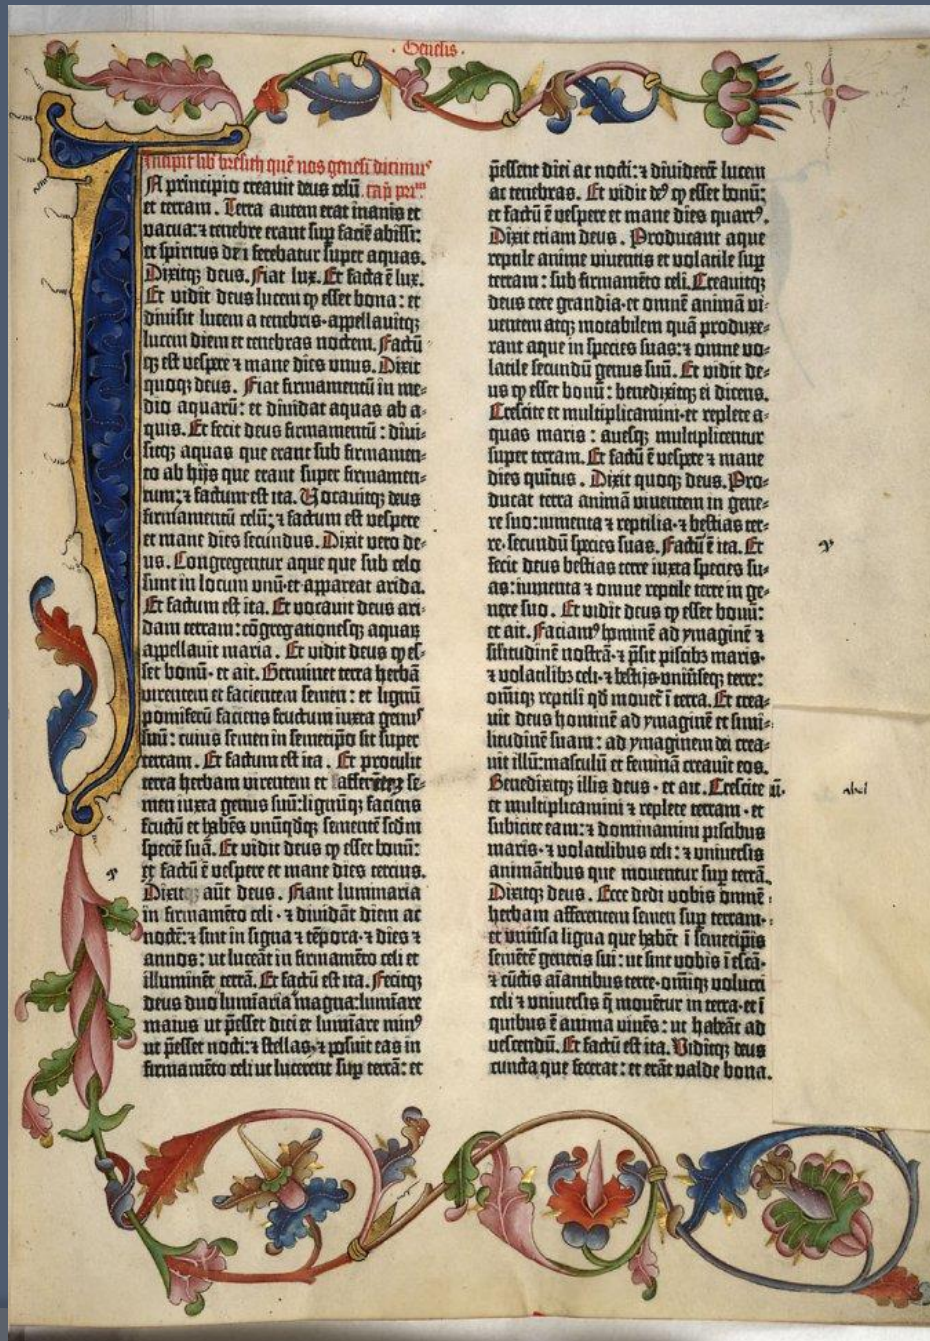 Genesis
Incipit lib̄ bresith quē nos genesi dicimꝰ
In principio creavit deus celū cap̄ primū
et terram. Terra autem erat inanis et
vacua: ⁊ tenebre erant sup̱ faciē abissi:
et spiritus dei ferebatur super aquas.
Dixitqꝫ deus. Fiat lux. Et facta ē lux.
Et vidit deus lucem ꝙ esset bona: et
divisit lucem a tenebris· appellavitqꝫ
lucem diem et tenebras noctem. Factū
qꝫ est vespere ⁊ mane dies unus. Dixit
quoqꝫ deus. Fiat firmamentū in me⸗
dio aquarū: et dividat aquas ab a⸗
quis. Et fecit deus firmamentū: divi⸗
sitqꝫ aquas que erant sub firmamen⸗
to ab hijs que erant super firmamen⸗
tum: ⁊ factum est ita. Vocavitqꝫ deus
firmamentū celū: ⁊ factum est vespere
et mane dies secundus. Dixit vero de⸗
us. Congregentur aque que sub celo
sunt in locum unū· et appareat arida.
Et factum est ita. Et vocavit deus ari⸗
dam terram: cōgregationesqꝫ aquaꝝ
appellavit maria. Et vidit deus ꝙ es⸗
set bonū· et ait. Germinet terra herbā
virentem et facientem semen: et lignū
pomiferū faciens fructum iuxta genꝰ
suū: cuius semen in semetip̄o sit super
terram. Et factum est ita. Et protulit
terra herbam virentem et afferētem se⸗
men iuxta genus suū: lignūqꝫ faciens
fructū et habēs unūqdqꝫ sementē scd̄m
speciē suā. Et vidit deus ꝙ esset bonū:
et factū ē vespere et mane dies tercius.
Dixitqꝫ aūt deus. Fiant luminaria
in firmamēto celi· ⁊ dividāt diem ac
noctē: ⁊ sint in signa ⁊ tēpora· ⁊ dies ⁊
annos: ut luceāt in firmamēto celi et
illuminēt terrā. Et factū est ita. Fecitqꝫ
deus duo lumīaria magna: lumīare
maius ut p̄esset diei et lumīare minꝰ
ut p̄esset nocti: ⁊ stellas· ⁊ posuit eas in
firmamēto celi ut lucerent sup̱ terrā: et
p̄essent diei ac nocti: ⁊ dividerēt lucem
ac tenebras. Et vidit deꝰ ꝙ esset bonū:
et factū ē vespere et mane dies quartꝰ.
Dixit etiam deus. Producant aque
reptile anime viventis et volatile sup̱
terram: sub firmamēto celi. Creavitqꝫ
deus cete grandia· et omnē animā vi⸗
ventem atqꝫ motabilem quā produxe⸗
rant aque in species suas: ⁊ omne vo⸗
latile secundū genus suū. Et vidit de⸗
us ꝙ esset bonū: benedixitqꝫ ei dicens.
Crescite et multiplicamini· et replete a⸗
quas maris: avesqꝫ multiplicentur
super terram. Et factū ē vespere ⁊ mane
dies quītus. Dixit quoqꝫ deus. Pro⸗
ducat terra animā viventem in gene⸗
re suo: iumenta ⁊ reptilia· ⁊ bestias ter⸗
re· secundū species suas. Factū ē ita. Et
fecit deus bestias terre iuxta species su⸗
as: iumenta ⁊ omne reptile terre in ge⸗
nere suo. Et vidit deus ꝙ esset bonū:
et ait. Faciamꝰ hominē ad ymaginē ⁊
silitudinē nostrā· ⁊ p̄sit piscibꝫ maris·
⁊ volatilibꝫ celi· ⁊ bestijs· univ̄seqꝫ terre:
om̄iqꝫ reptili qd̄ movet̄ ī terra. Et crea⸗
vit deus hominē ad ymaginē et simi⸗
litudinē suam: ad ymaginem dei crea⸗
vit illū: masculū et feminā creavit eos.
Benedixitqꝫ illis deus· et ait. Crescite
et multiplicamini ⁊ replete terram· et
subicite eam: ⁊ dominamini piscibus
maris· ⁊ volatilibus celi: ⁊ universis
animātibus que moventur sup̱ terrā.
Dixitqꝫ deus. Ecce dedi vobis omnē
herbam afferentem semen sup̱ terram·
et univ̄sa ligna que habēt ī semetip̄is
semētē generis sui: ut sint vobis ī escā·
⁊ cūctis aīantibus terre· om̄iqꝫ volucri
celi ⁊ universis q̄ movētur in terra· et ī
quibus ē anima vivēs: ut habeāt ad
vescendū. Et factū est ita. Viditqꝫ deus
cuncta que fecerat: et erāt valde bona.